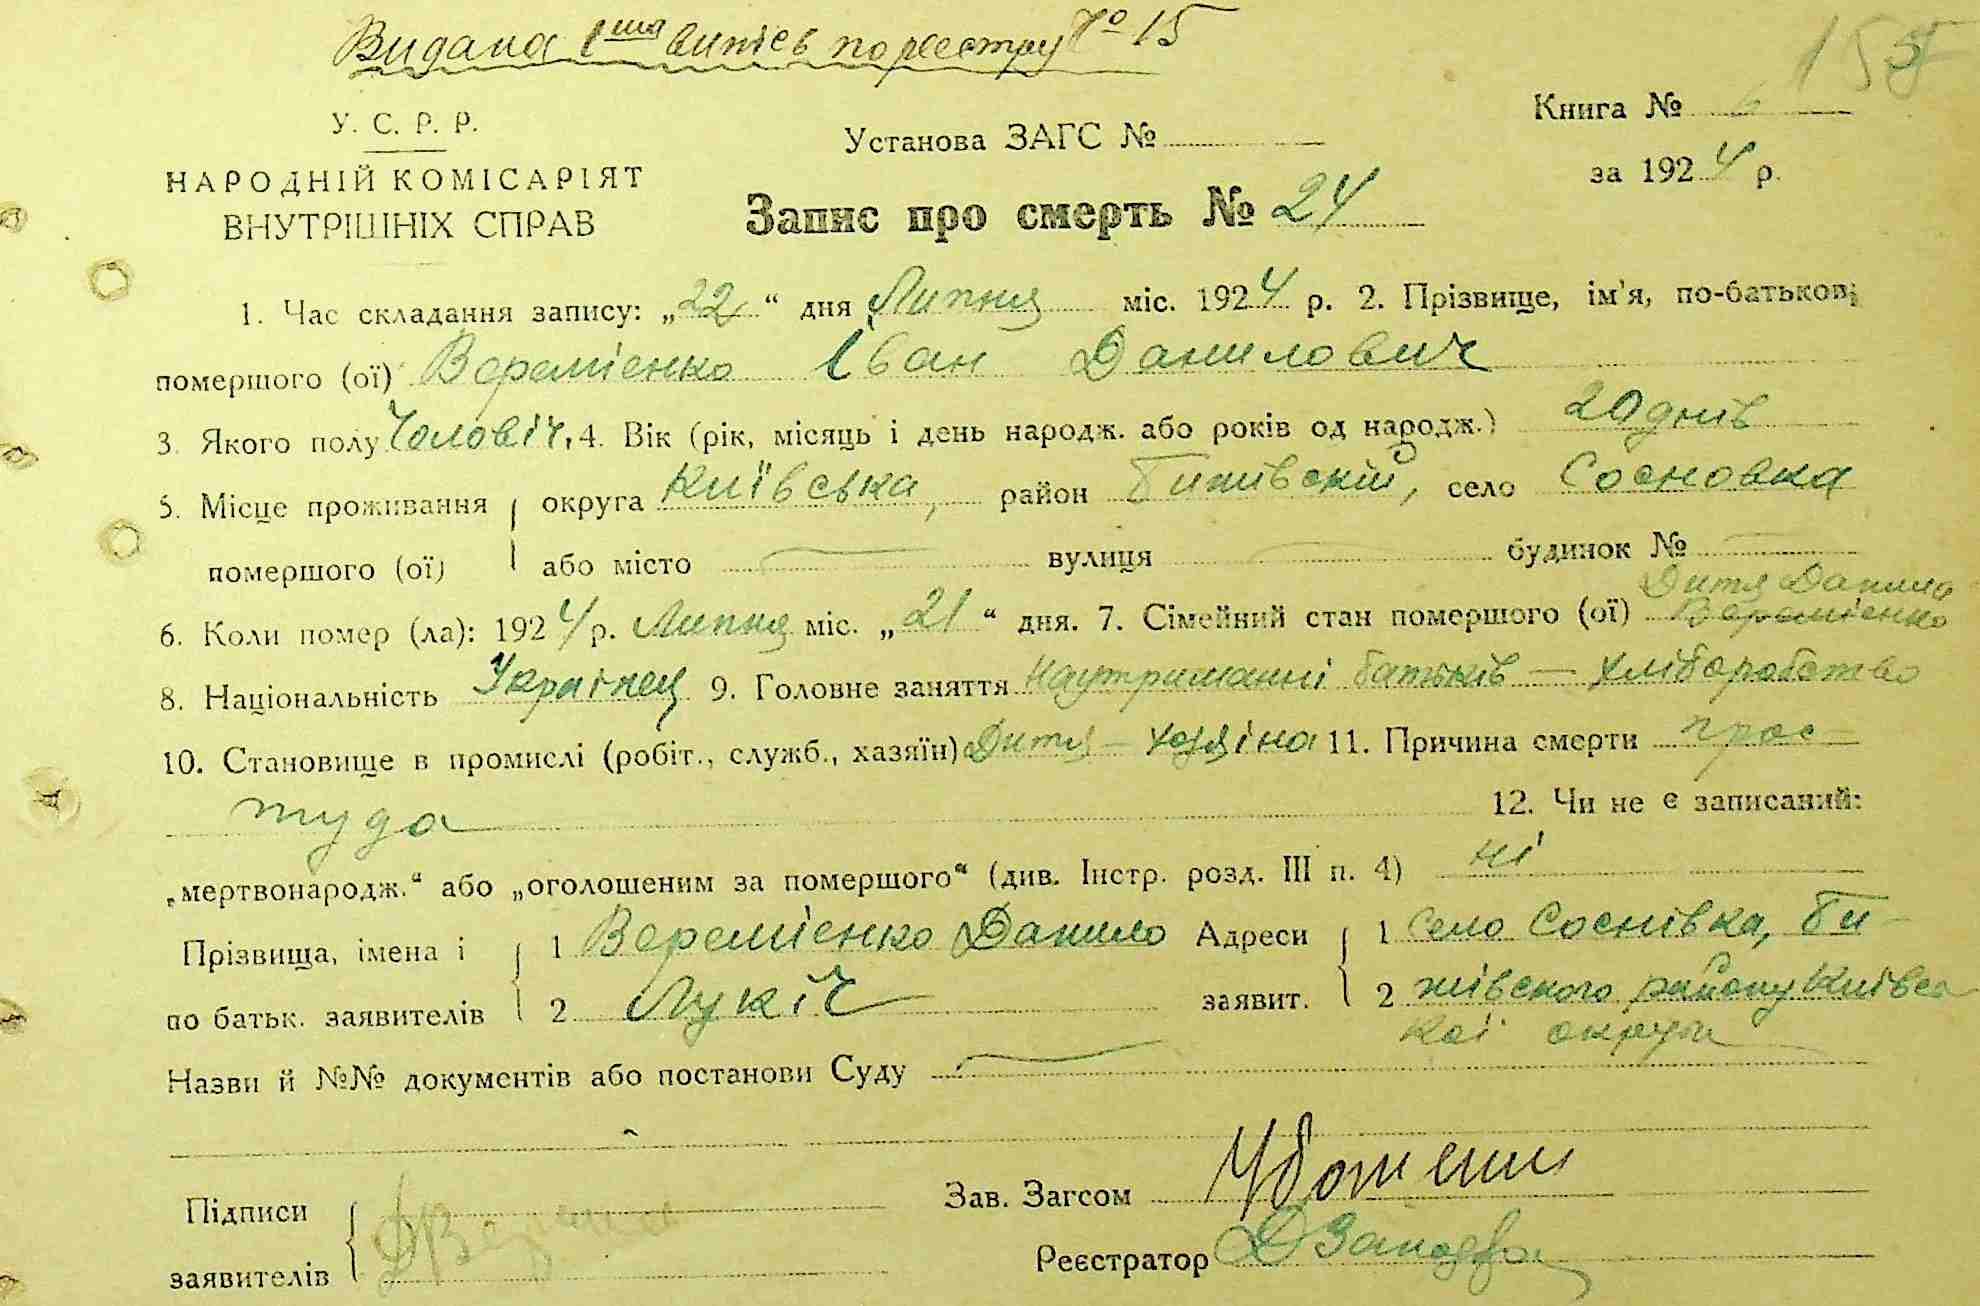 Видана 1ша випис по реєстру № 15
155
У. С. Р. Р.
НАРОДНІЙ КОМІСАРІЯТ
ВНУТРІШНІХ СПРАВ
Установа ЗАГС №
Книга № 6
за 1924 р.
Запис про смерть № 24
1. Час складання запису: „22“ дня Липня міс. 1924 р. 2. Прізвище, ім'я, по-батькові
помершого (ої) Веремієнко Іван Данилович
3. Якого полу Чоловіч. 4. Вік (рік, місяць і день народж. або років од народж.) 20 днів
5. Місце проживання округа Київська, район Бишівский, село Сосновка
помершого (ої) або місто — вулиця — будинок № —
6. Коли помер (ла): 1924 р. Липня міс. „21“ дня. 7. Сімейний стан помершого (ої) Дитя Данила
Веремієнко
8. Національність Українец 9. Головне заняття На утриманні батьків — хліборобство
10. Становище в промислі (робіт., служб., хазяїн) Дитя — хазяіна 11. Причина смерти прос-
туда 12. Чи не є записаний:
„мертвонародж.“ або „оголошеним за помершого“ (див. Інстр. розд. III п. 4) ні
Прізвища, імена і 1 Веремієнко Данило Адреси 1 Село Соснівка, Би-
по батьк. заявителів 2 Лукіч заявит. 2 шівского району Київсь
кої округи
Назви й №№ документів або постанови Суду —
Підписи
заявителів
Зав. Загсом
Реєстратор